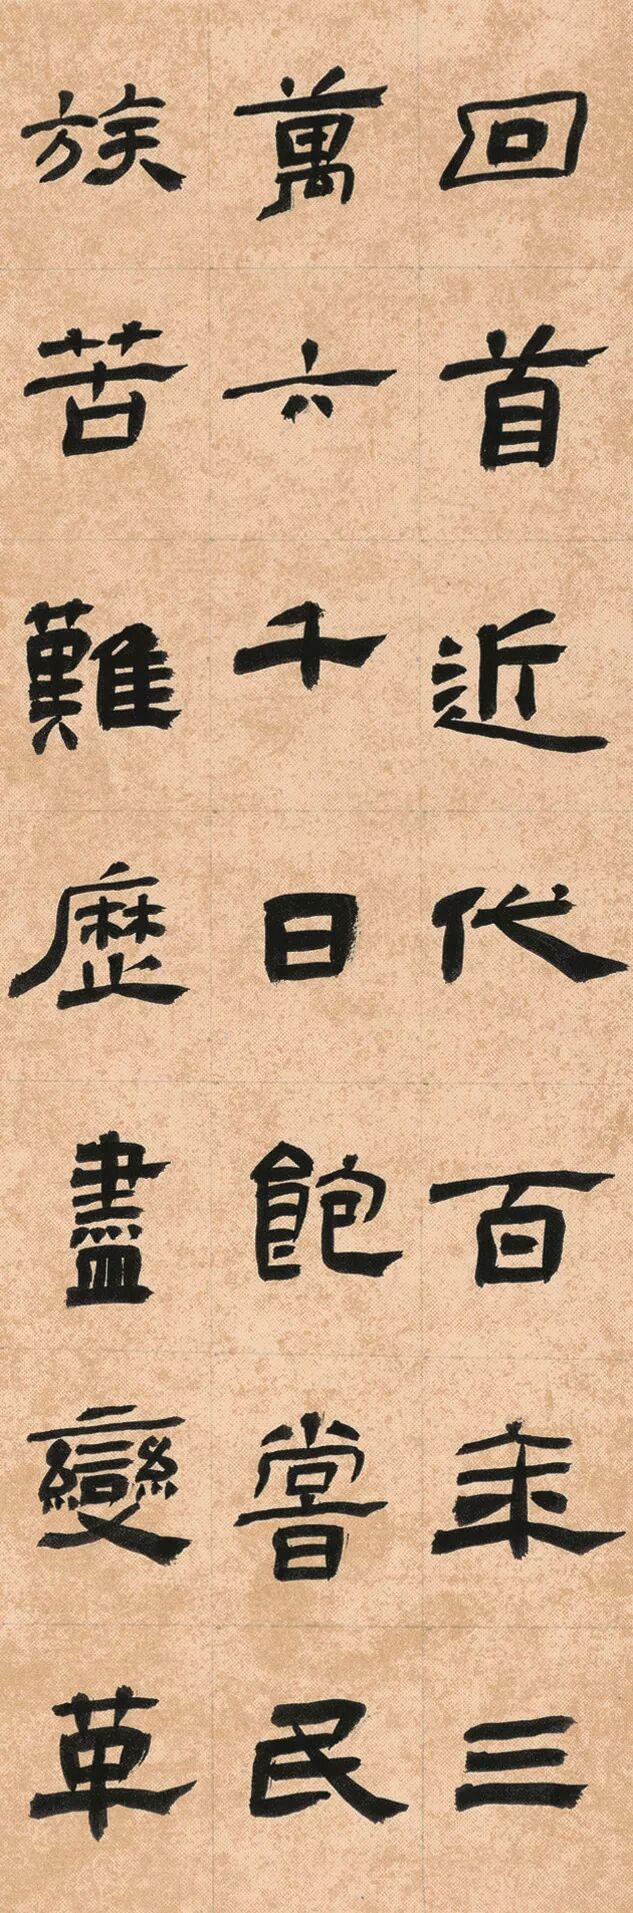 回首近代百年三
萬六千日飽嘗民
族苦難歷盡變革